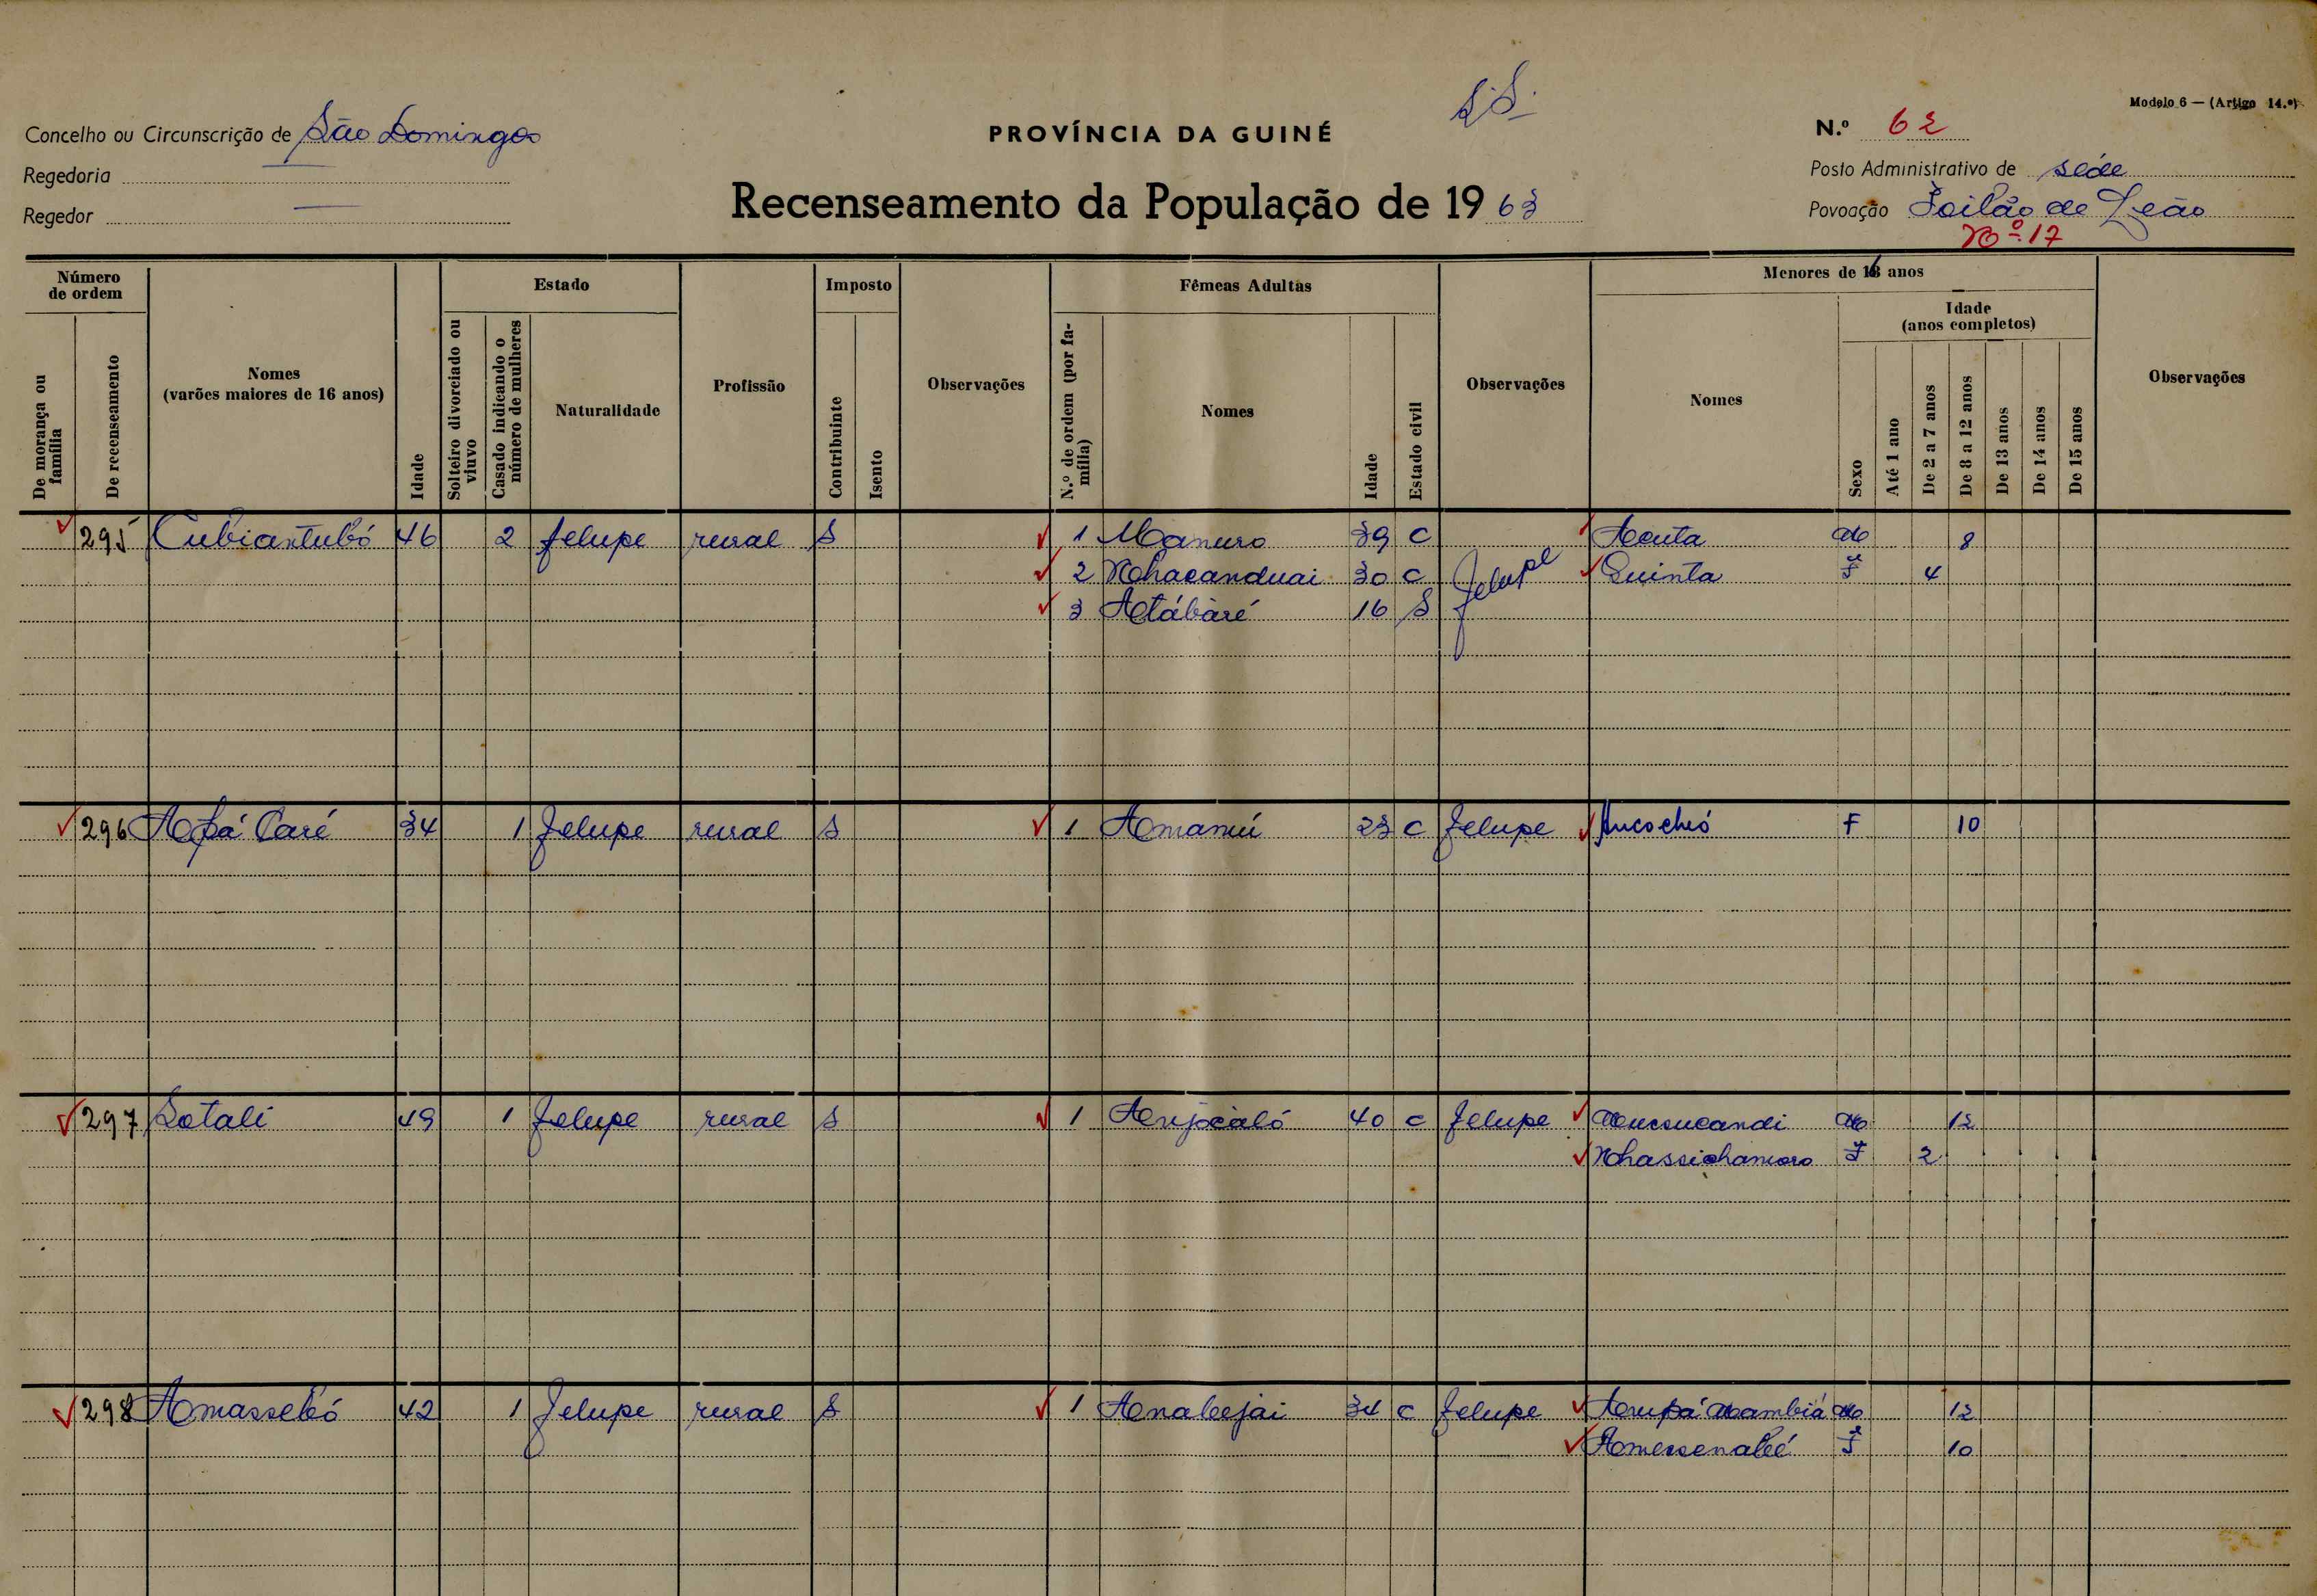 Modelo 6 — (Artigo 14.º)
S.S.
Concelho ou Circunscrição de São Domingos
PROVÍNCIA DA GUINÉ
N.º 62
Regedoria —
Posto Administrativo de séde
Regedor —
Recenseamento da População de 1963
Povoação
Nº 17
Número de ordem
Estado
Imposto
Fêmeas Adultas
Menores de 16 anos
Idade (anos completos)
De morança ou família
De recenseamento
Nomes (varões maiores de 16 anos)
Idade
Solteiro divorciado ou viuvo
Casado indicando o número de mulheres
Naturalidade
Profissão
Contribuinte
Isento
Observações
N.º de ordem (por família)
Nomes
Idade
Estado civil
Observações
Nomes
Sexo
Até 1 ano
De 2 a 7 anos
De 8 a 12 anos
De 13 anos
De 14 anos
De 15 anos
Observações
295 Cubiantubó 46 2 felupe rural S 1 Manuro 39 C M 8
2 Nhacanduai 30 C Felupe Quinta F 4
3 16 S
296 34 1 Felupe rural S 1 Amanuí 23 C Felupe F 10
297 Sotali 49 1 Felupe rural S 1 40 C Felupe M 12
F 2
298 Amassebó 42 1 Felupe rural S 1 34 C Felupe M 12
F 10